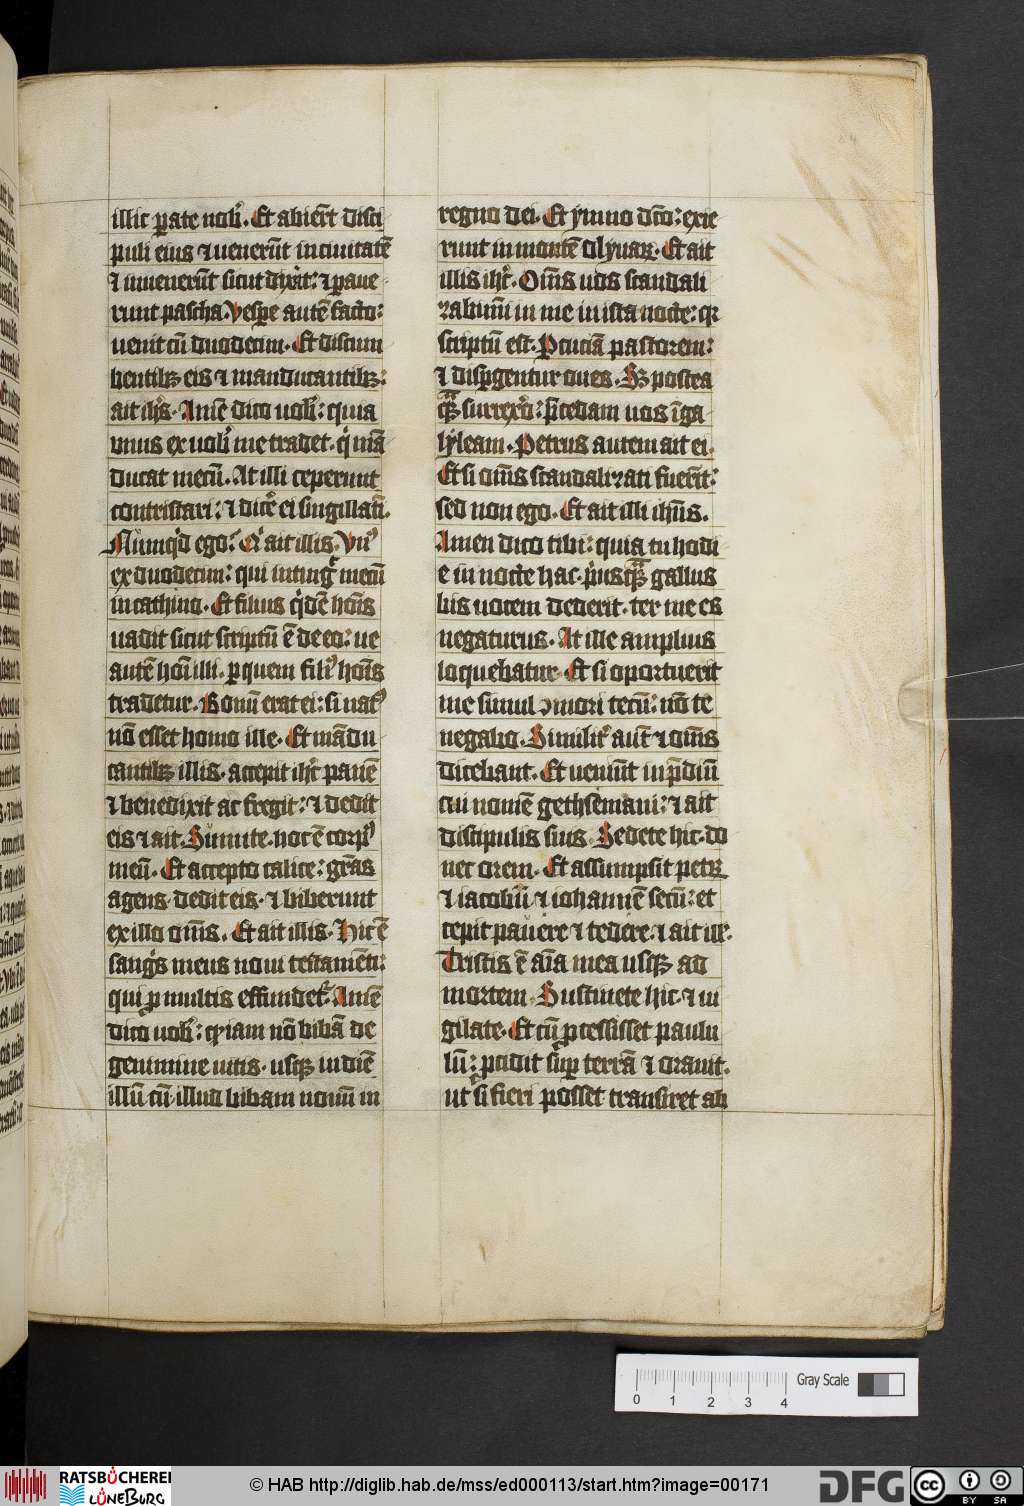 illic parate nob̄. Et abiert̄ disci
puli eius ⁊ uenerūt in ciuitatē
⁊ inuenerūt sicut dixāt: ⁊ paraue
runt pascha. Vespe autē facto:
uenit cū duodecim. Et discum
bentibꝫ eis ⁊ manducantibꝫ:
ait ih̄s. Amē dico uob̄: quia
vnus ex uob̄ me tradet. q̇ mā
ducat mecū. At illi ceperunt
contristari: ⁊ dicē ei singillatī.
Nūmqd ego? Qi ait illis. Vnꝰ
ex duodecim: qui intingͥ mecū
in cathino. Et filius qdē hoīs
uadit sicut scriptū ē de eo: ue
autē hoī illi. ꝑ quem filiꝰ hoīs
tradetur. Bonū erat ei: si natꝰ
nō esset homo ille. Et mādu
cantibꝫ illis. accepit ihc̄ panē
⁊ benedixit ac fregit: ⁊ dedit
eis ⁊ ait. Sumite. hoc ē corpꝰ
meū. Et accepto calice: grās
agens dedit eis. ⁊ biberunt
ex illo om̄s. Et ait illis. Hic ē
sangͥs meus noui testamēti:
qui ꝓ multis effundet᷑. Amē
dico uob̄: qͥ iam nō bibā de
genimine uitis. usqꝫ in diē
illū cū illud bibam nouū in
regno dei. Et ymno dc̄o: exie
runt in montē Olyuaꝝ. Et ait
illis ihc̄. Om̄s uos scandali
zabimī in me in ista nocte: qꝛ
scriptū est. Ꝑcuciā pastorem:
⁊ dispgentur oues. Sꝫ postea
qͣꝫ surrexo: p̄cedam uos ī ga
lyleam. Petrus autem ait ei.
Et si om̄s scandalizati fuerīt:
sed non ego. Et ait illi ihūs.
Amen dico tibi: quia tu hodi
e in nocte hac. pͥusqͣꝫ gallus
bis uocem dederit. ter me es
negaturus. At ille amplius
loquebatur. Et si oportuerit
me simul ꝯmori tecū: nō te
negabo. Similit᷑ aut̄ ⁊ om̄s
dicebant. Et ueniūt in p̄diū
cui nomē gethsemani: ⁊ ait
discipulis suis. Sedete hic. do
nec orem. Et assumpsit petꝝ
⁊ iacobū ⁊ iohannē secū: et
cepit pauere ⁊ tedere. ⁊ ait ill̄.
Tristis ē aīa mea usqꝫ ad
mortem. Sustinete hic. ⁊ ui
gilate. Et cū ꝓcessisset paulu
lū: pcidit sup terrā ⁊ orauit.
ut si fieri posset transiret ab
0 1 2 3 4
Gray Scale
RATSBÜCHEREI
LÜNEBURG
© HAB http://diglib.hab.de/mss/ed000113/start.htm?image=00171
DFG
cc
BY SA